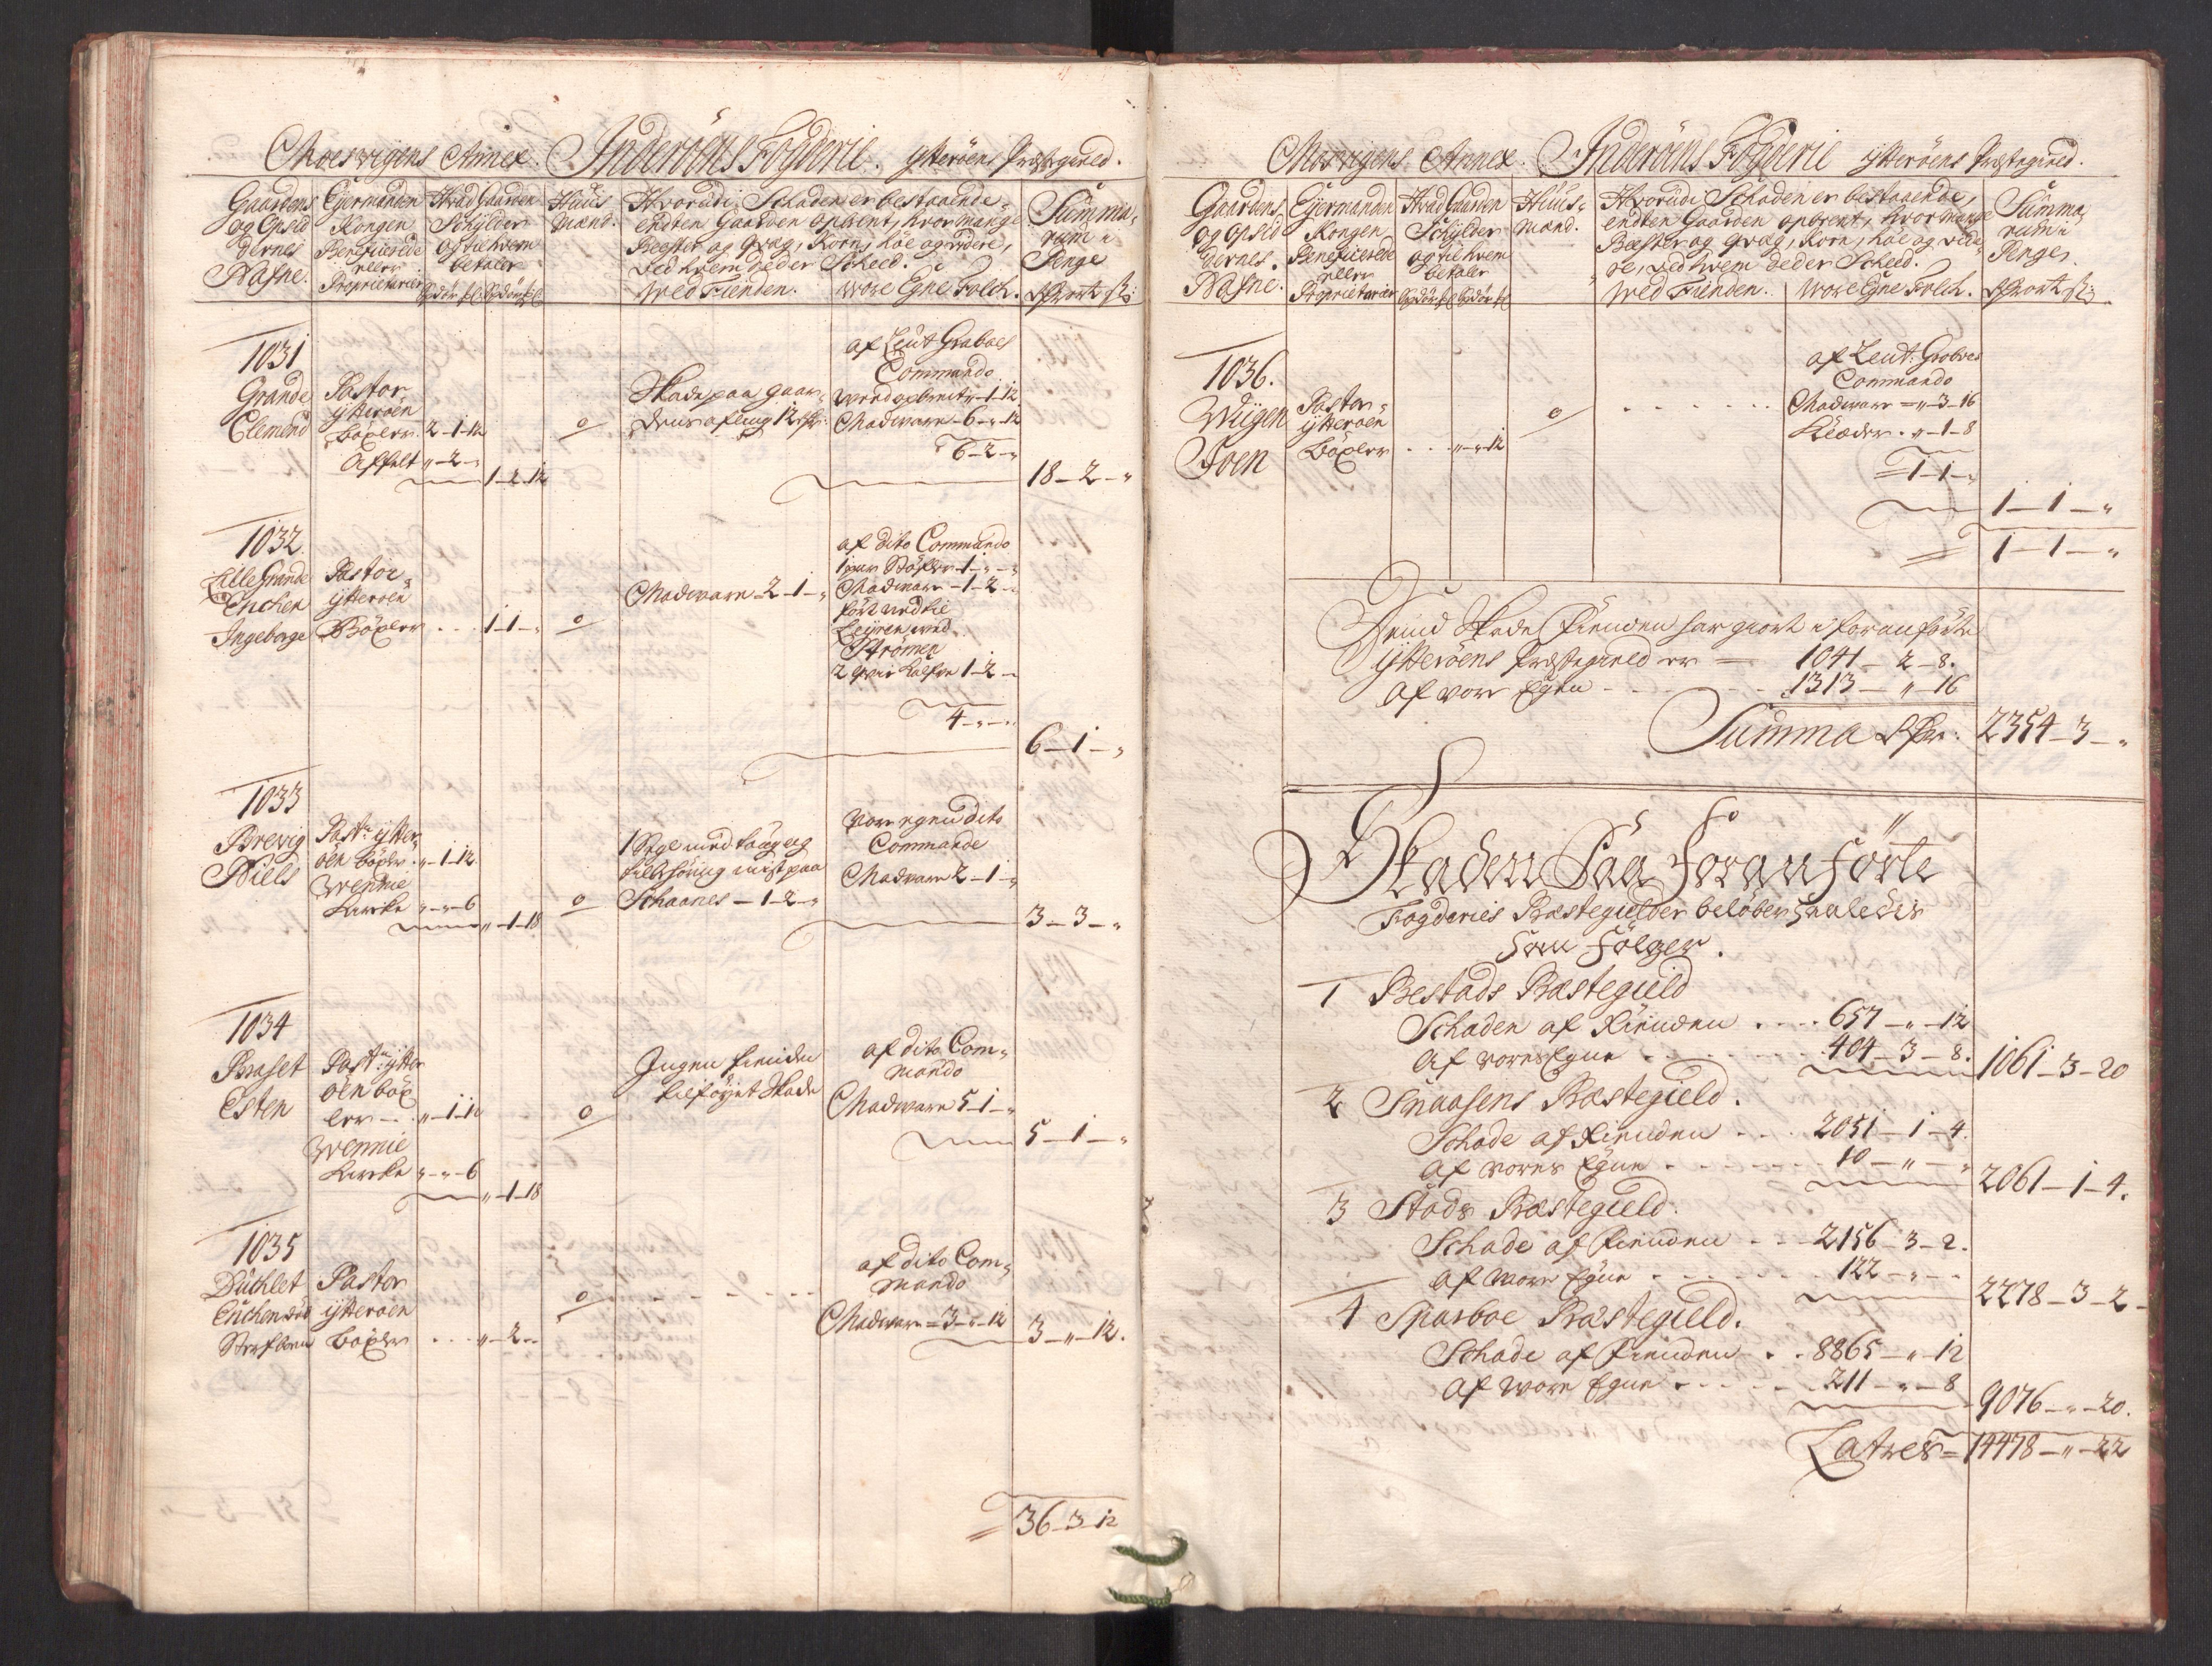 Annex. Inderöens Fogderie. ytteröens Præstegield.
Gaardens
og Opsid
dernes
Nafne.
Eyermanden
Kongen
Beneficerede
eller
Proprietarier
Hvad Gaarden
Schylder
og til hvem
betaler
Huus
Mænd.
Hvorudi Schaden er bestaaende,
endten Gaarden opbrent, hvor mange
Bester og qvæg, Korn, höe og videre,
ved hvem det er Scheed.
Wed Fienden. Wore Egne Folch.
Summa
rum i
Penge
1031
Grande
Clemend
Pastor
ytteröen
böxler 2-1-12
Affelt „-2-„
1-2-12
0
Skade paa gaar
dens afling 12 
af Leut Graboes
Commando
Wed opbrent 1-12
Madware 6-„-12
6-2-„
18-2-„
1032
Lille Grande
Enchen
Ingeborge
Pastor
ytteröen
Böxler 1-1-„
0
Madware 2-1-„
af dito Commando
1 par Stöfler 1-„-„
Madware 1-2-„
fört ned til
Leyren wed
Strömen
2 Kalfve 1-2-„
4-„-„
6-1-„
1033
Brevig
Niels
Past: ytter
öen böxler „-1-12
Wennie
Kircke „-„-6
„-1-18
0
mist paa
Schaanes 1-2-„
Vor egen dito
Commande
Madware 2-1-„
3-3-„
1034
Braset
Esten
Past: ytter
öen böx
ler „-1-12
Wennie
Kircke „-„-6
„-1-18
0
Ingen fiender
tilföyet Skade
af dito Com
mando
Madware 5-1-„
5-1-„
1035
Duchlet
Enchen
Pastor
ytteröen
böxler „-2-„
0
af dito Com
mando
Madware 3-„-12
3-„-12.
36-3-12
Annex. Inderöens Fogderie ytteröens Præstegield.
Gaardens
og Opsid
dernes
Nafne.
Eyermanden
Kongen
Beneficerede
eller
Proprietarier
Hvad Gaarden
Schylder
og til hvem
betaler
Huus
Mænd.
Hvorudi Schaden er bestaaende,
endten Gaarden opbrent, hvor mange
Bæster og qvæg, Korn, höe og vide
re, ved hvem det er Scheed.
Wed Fienden. Wore Egne Folch.
Summa
rum i
Penge.
1036.
Wiigen
Joen
Pastor
ytteröen
böxler „-„-12
0
af Leut: Graboes
Commando
Madware „-3-16
Klæder „-1-8
1-1-„
1-1-„
1-1-„
Skade Fienden har giort i foranförte
ytteröens Præstegield er 1041-2-8.
Af vore Egen 1313-„-16
Summa Rdr: 2354-3-„
Skaden Paa Foranförte
Fogderies Præstegielder belöber saaledes
som Fölger.
1 Bestads Præstegield
Schaden af Fienden 657-„-12
Af vores Egne 404-3-8. 1061-3-20
2 Snaasens Præstegield.
Schade af Fienden 2051-1-4.
Af vores Egne 10-„-„ 2061-1-4.
3 Stads Præstegield.
Schade af Fienden 2156-3-2.
Af Wore Egne 122-„-„ 2278-3-2
4 Sparboe Præstegield.
Schade af Fienden 8865-„-12
Af Wore Egne 211-„-8 9076-„-20.
Latres 14478-„-22